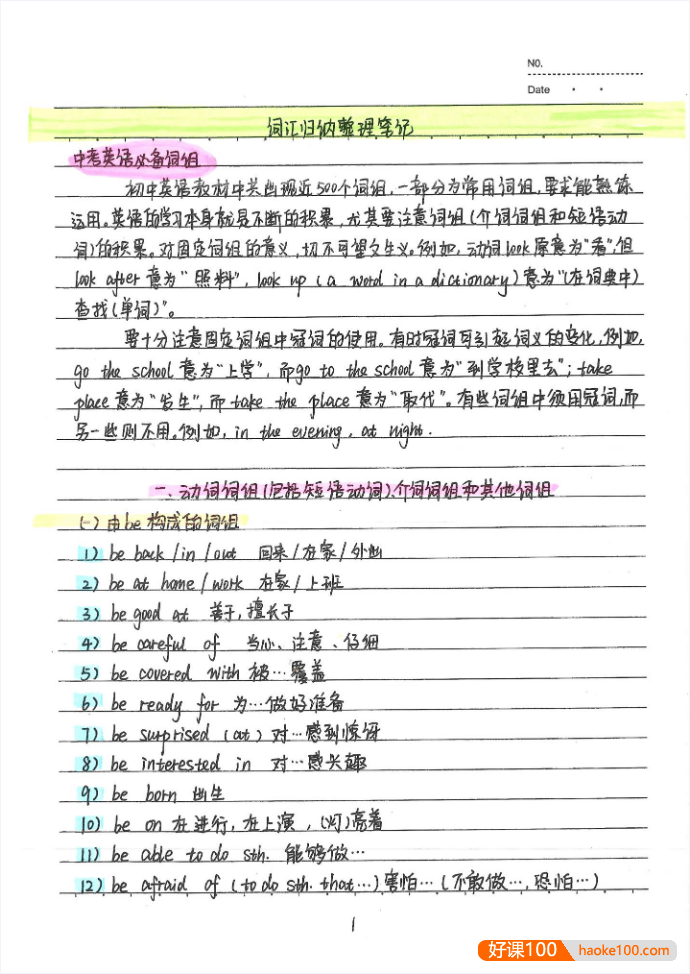 NO.
Date
词汇归纳整理笔记
中考英语必备词组
初中英语教材中共出现近500个词组,一部分为常用词组,要求能熟练
运用。英语的学习本身就是不断的积累,尤其要注意词组(介词词组和短语动
词)的积累。对固定词组的意义,切不可望文生义。例如,动词look原意为"看",但
look after意为"照料",look up (a word in a dictionary)意为"(在词典中)
查找(单词)"。
要十分注意固定词组中冠词的使用。有时冠词可引起词义的变化,例如,
go the school意为"上学",而go to the school意为"到学校里去";take
place意为"发生",而take the place意为"取代"。有些词组中须用冠词,而
另一些则不用。例如,in the evening, at night.
一、动词词组(包括短语动词)、介词词组和其他词组
(一)由be构成的词组
1) be back/in/out 回来/在家/外出
2) be at home/work 在家/上班
3) be good at 善于,擅长于
4) be careful of 当心、注意、仔细
5) be covered with 被…覆盖
6) be ready for 为…做好准备
7) be surprised (at) 对…感到惊讶
8) be interested in 对…感兴趣
9) be born 出生
10) be on 在进行,在上演,(灯)亮着
11) be able to do sth. 能够做…
12) be afraid of (to do sth. that…) 害怕…(不敢做…,恐怕…)
1
好课100 haoke100.com